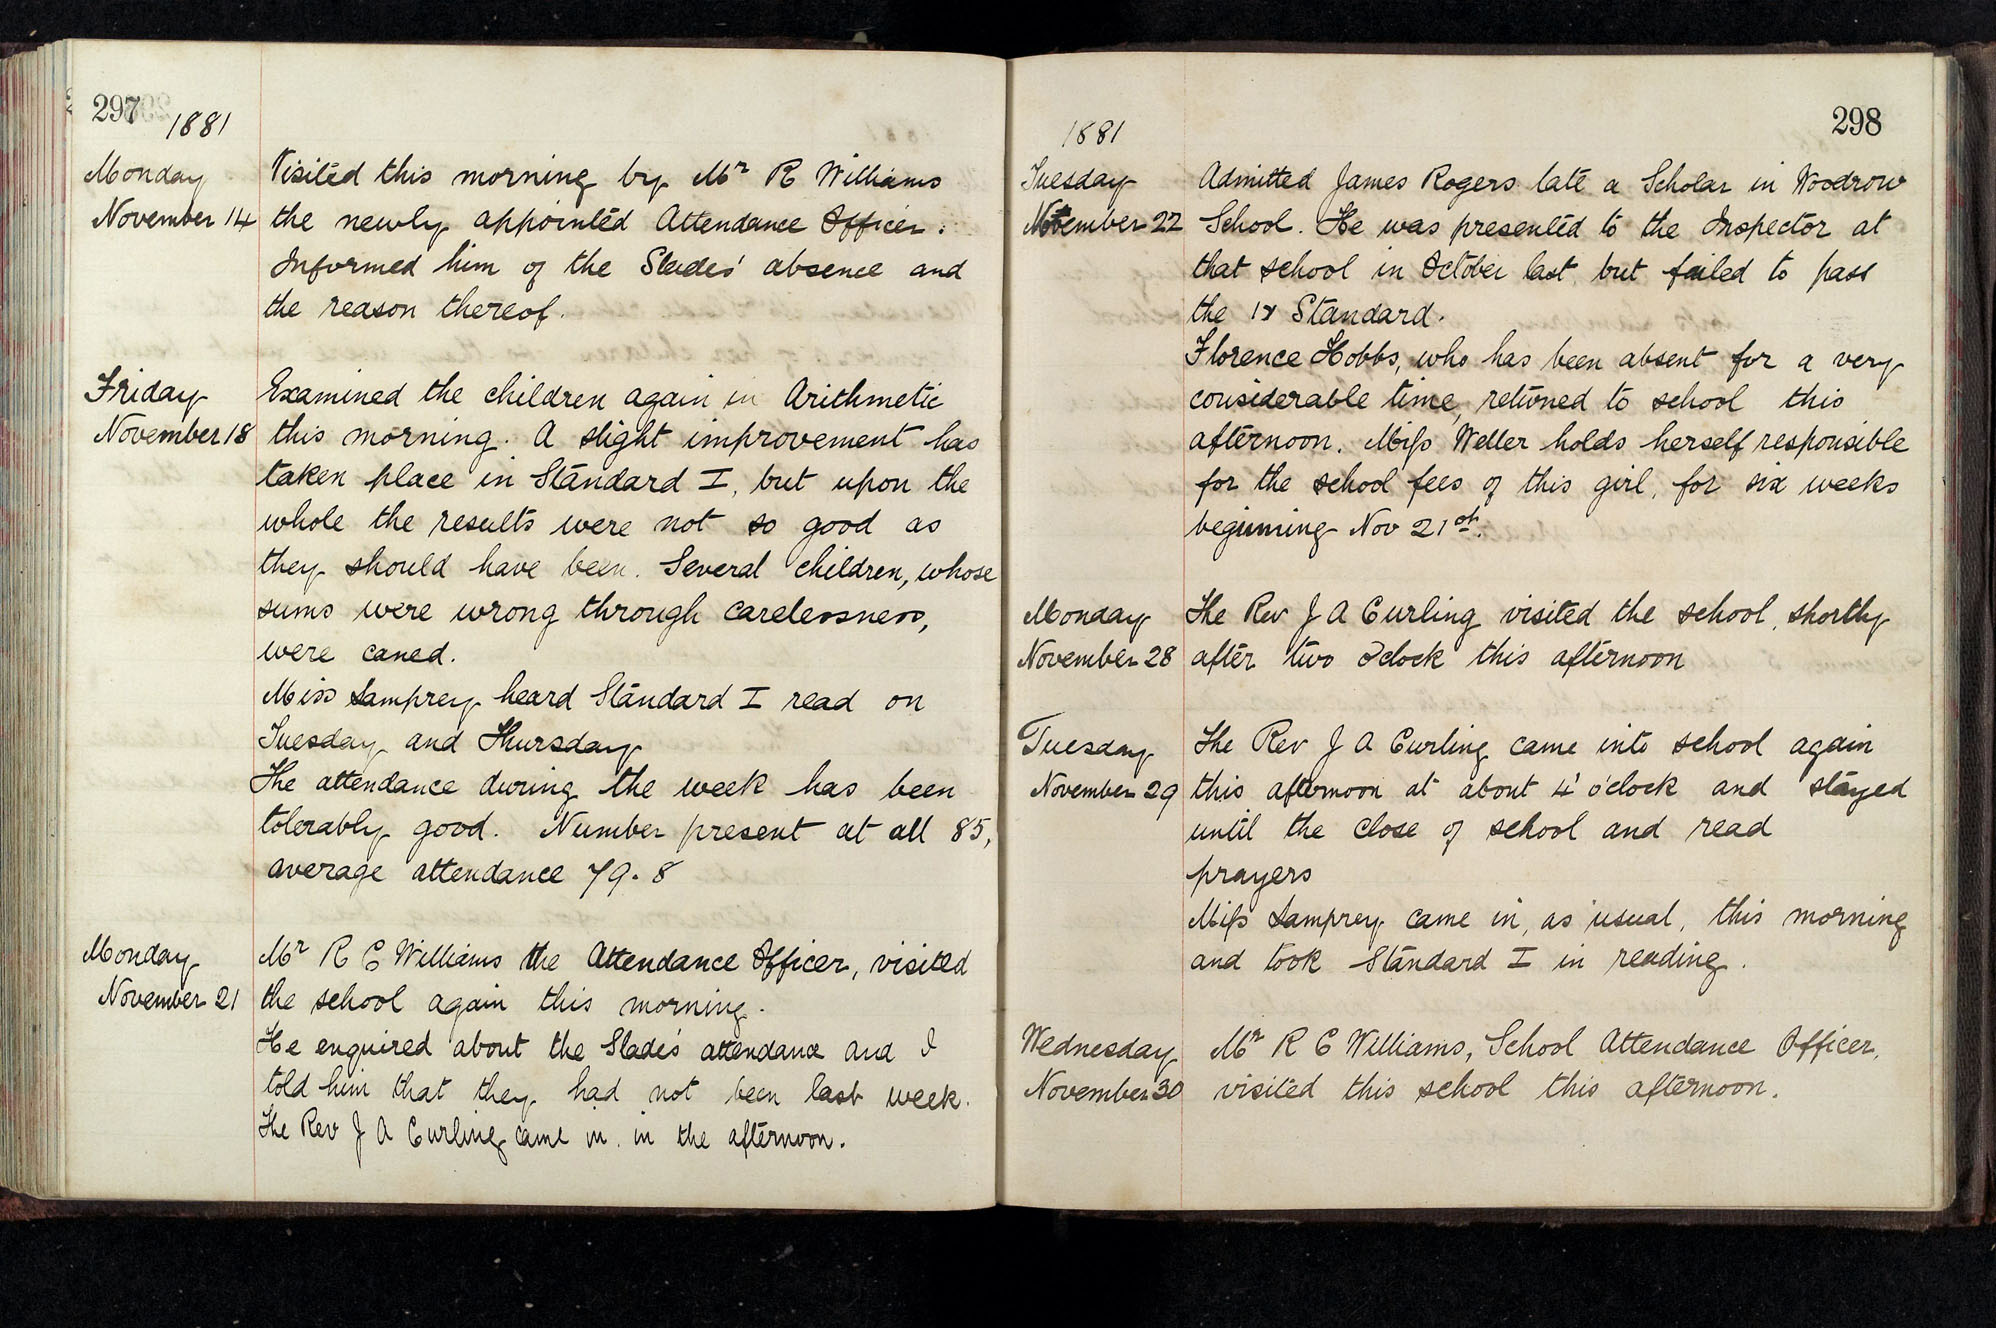 297
1881
Monday
November 14
Visited this morning by Mr R Williams
the newly appointed Attendance Officer.
Informed him of the Slades' absence and
the reason thereof.
Friday
November 18
Examined the children again in Arithmetic
this morning. A slight improvement has
taken place in Standard I, but upon the
whole the results were not so good as
they should have been. Several children, whose
sums were wrong through carelessness,
were caned.
Miss Lamprey heard Standard I read on
Tuesday and Thursday
The attendance during the week has been
tolerably good. Number present at all 85,
average attendance 79.8
Monday
November 21
Mr R C Williams the Attendance Officer, visited
the school again this morning.
He enquired about the Slade's attendance and I
told him that they had not been last week.
The Rev J A Curling came in in the afternoon.
298
1881
Tuesday
November 22
Admitted James Rogers late a Scholar in Woodrow
School. He was presented to the Inspector at
that school in October last but failed to pass
the Standard.
Florence Hobbs, who has been absent for a very
considerable time, returned to school this
afternoon. Miss Weller holds herself responsible
for the school fees of this girl, for six weeks
beginning Nov 21st.
Monday
November 28
The Rev J A Curling visited the school, shortly
after two o'clock this afternoon
Tuesday
November 29
The Rev J A Curling came into school again
this afternoon at about 4 o'clock and stayed
until the close of school and read
prayers
Miss Lamprey came in, as usual, this morning
and took Standard I in reading.
Wednesday
November 30
Mr R C Williams, School Attendance Officer,
visited this school this afternoon.